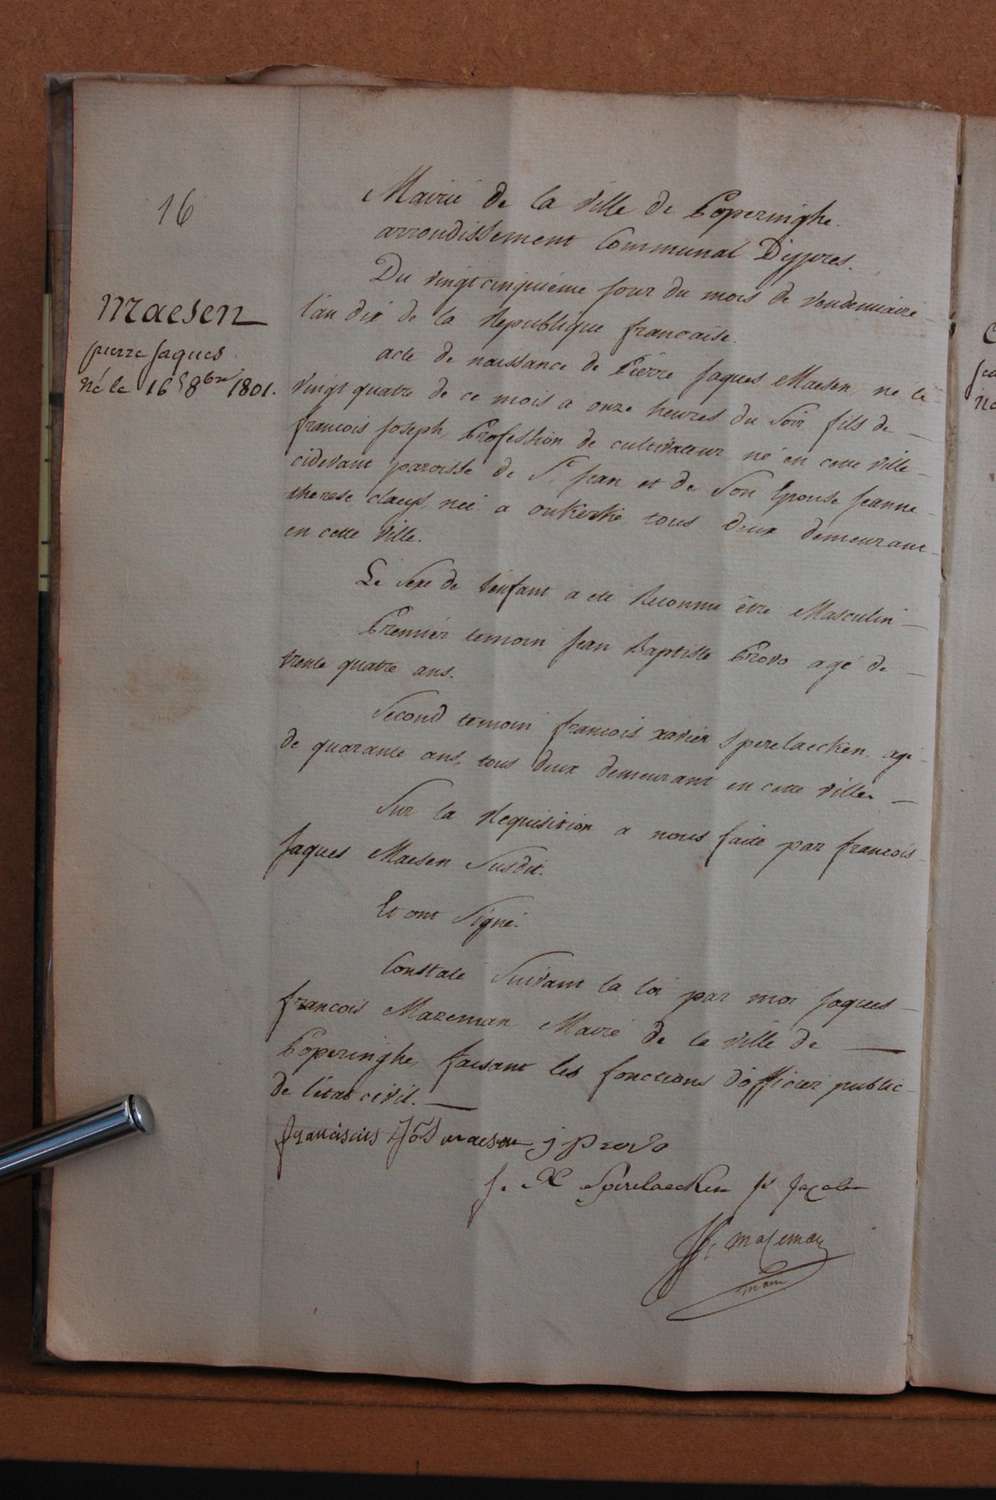 16
Maesen
pierre Jaques
né le 16 8bre 1801.
Mairie de la Ville de Poperinghe.
arrondissement Communal D'ijpres.
Du vingt cinquiéme jour du mois de Vendemiaire
l'an dix de la Republique francaise.
acte de naissance de Pierre Jaques Maesen né le
vingt quatre de ce mois a onze heures du Soir fils de
francois Joseph, Profession de cultivateur né en cette ville
cidevant paroisse de St Jean et de Son Epouse Jeanne
therese claeys, née a oukerke tous deux demeurant
en cette Ville.
Le Sexe de l'enfant a eté Reconnu être Masculin
Premier temoin Jean Baptiste Provo agé de
trente quatre ans.
Second temoin francois xavier Sperelaecken agé
de quarante ans, tous deux demeurant en cette Ville
Sur la Requisition a nous faite par francois
Jaques Maesen Susdit.
Et ont Signé.
Constaté Suivant la loi par moi Jaques
francois Mazeman Maire de la Ville de
Poperinghe, faisant les fonctions d'officier public
de l'etat civil.
franciscus Jos maesen j provo
f. X Sperelaecken
JF mazeman
maire
Né